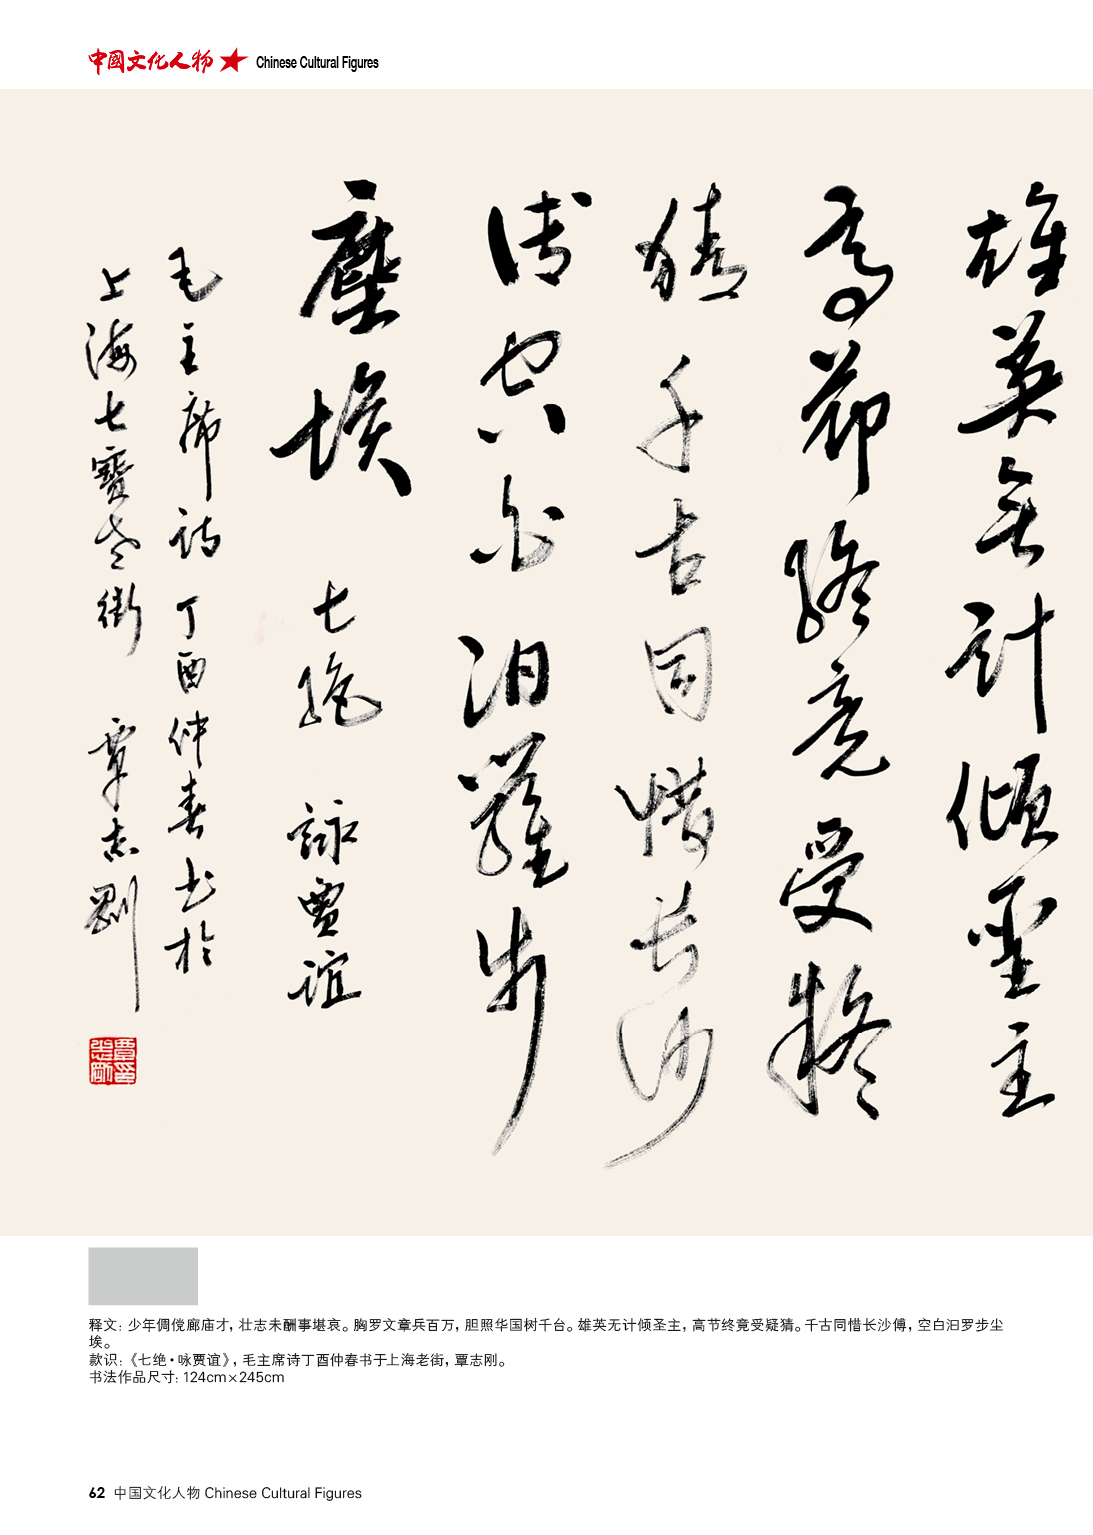 中國文化人物 Chinese Cultural Figures
雄英無計傾聖主
高節終竟受疑
猜千古同惜長沙
傅空白汨羅步
塵埃 七絕 詠賈誼
毛主席詩丁酉仲春书於
上海七寶老街 覃志剛
释文：少年倜傥廊庙才，壮志未酬事堪哀。胸罗文章兵百万，胆照华国树千台。雄英无计倾圣主，高节终竟受疑猜。千古同惜长沙傅，空白汨罗步尘
埃。
款识：《七绝·咏贾谊》，毛主席诗丁酉仲春书于上海老街，覃志刚。
书法作品尺寸：124cm×245cm
62 中国文化人物 Chinese Cultural Figures